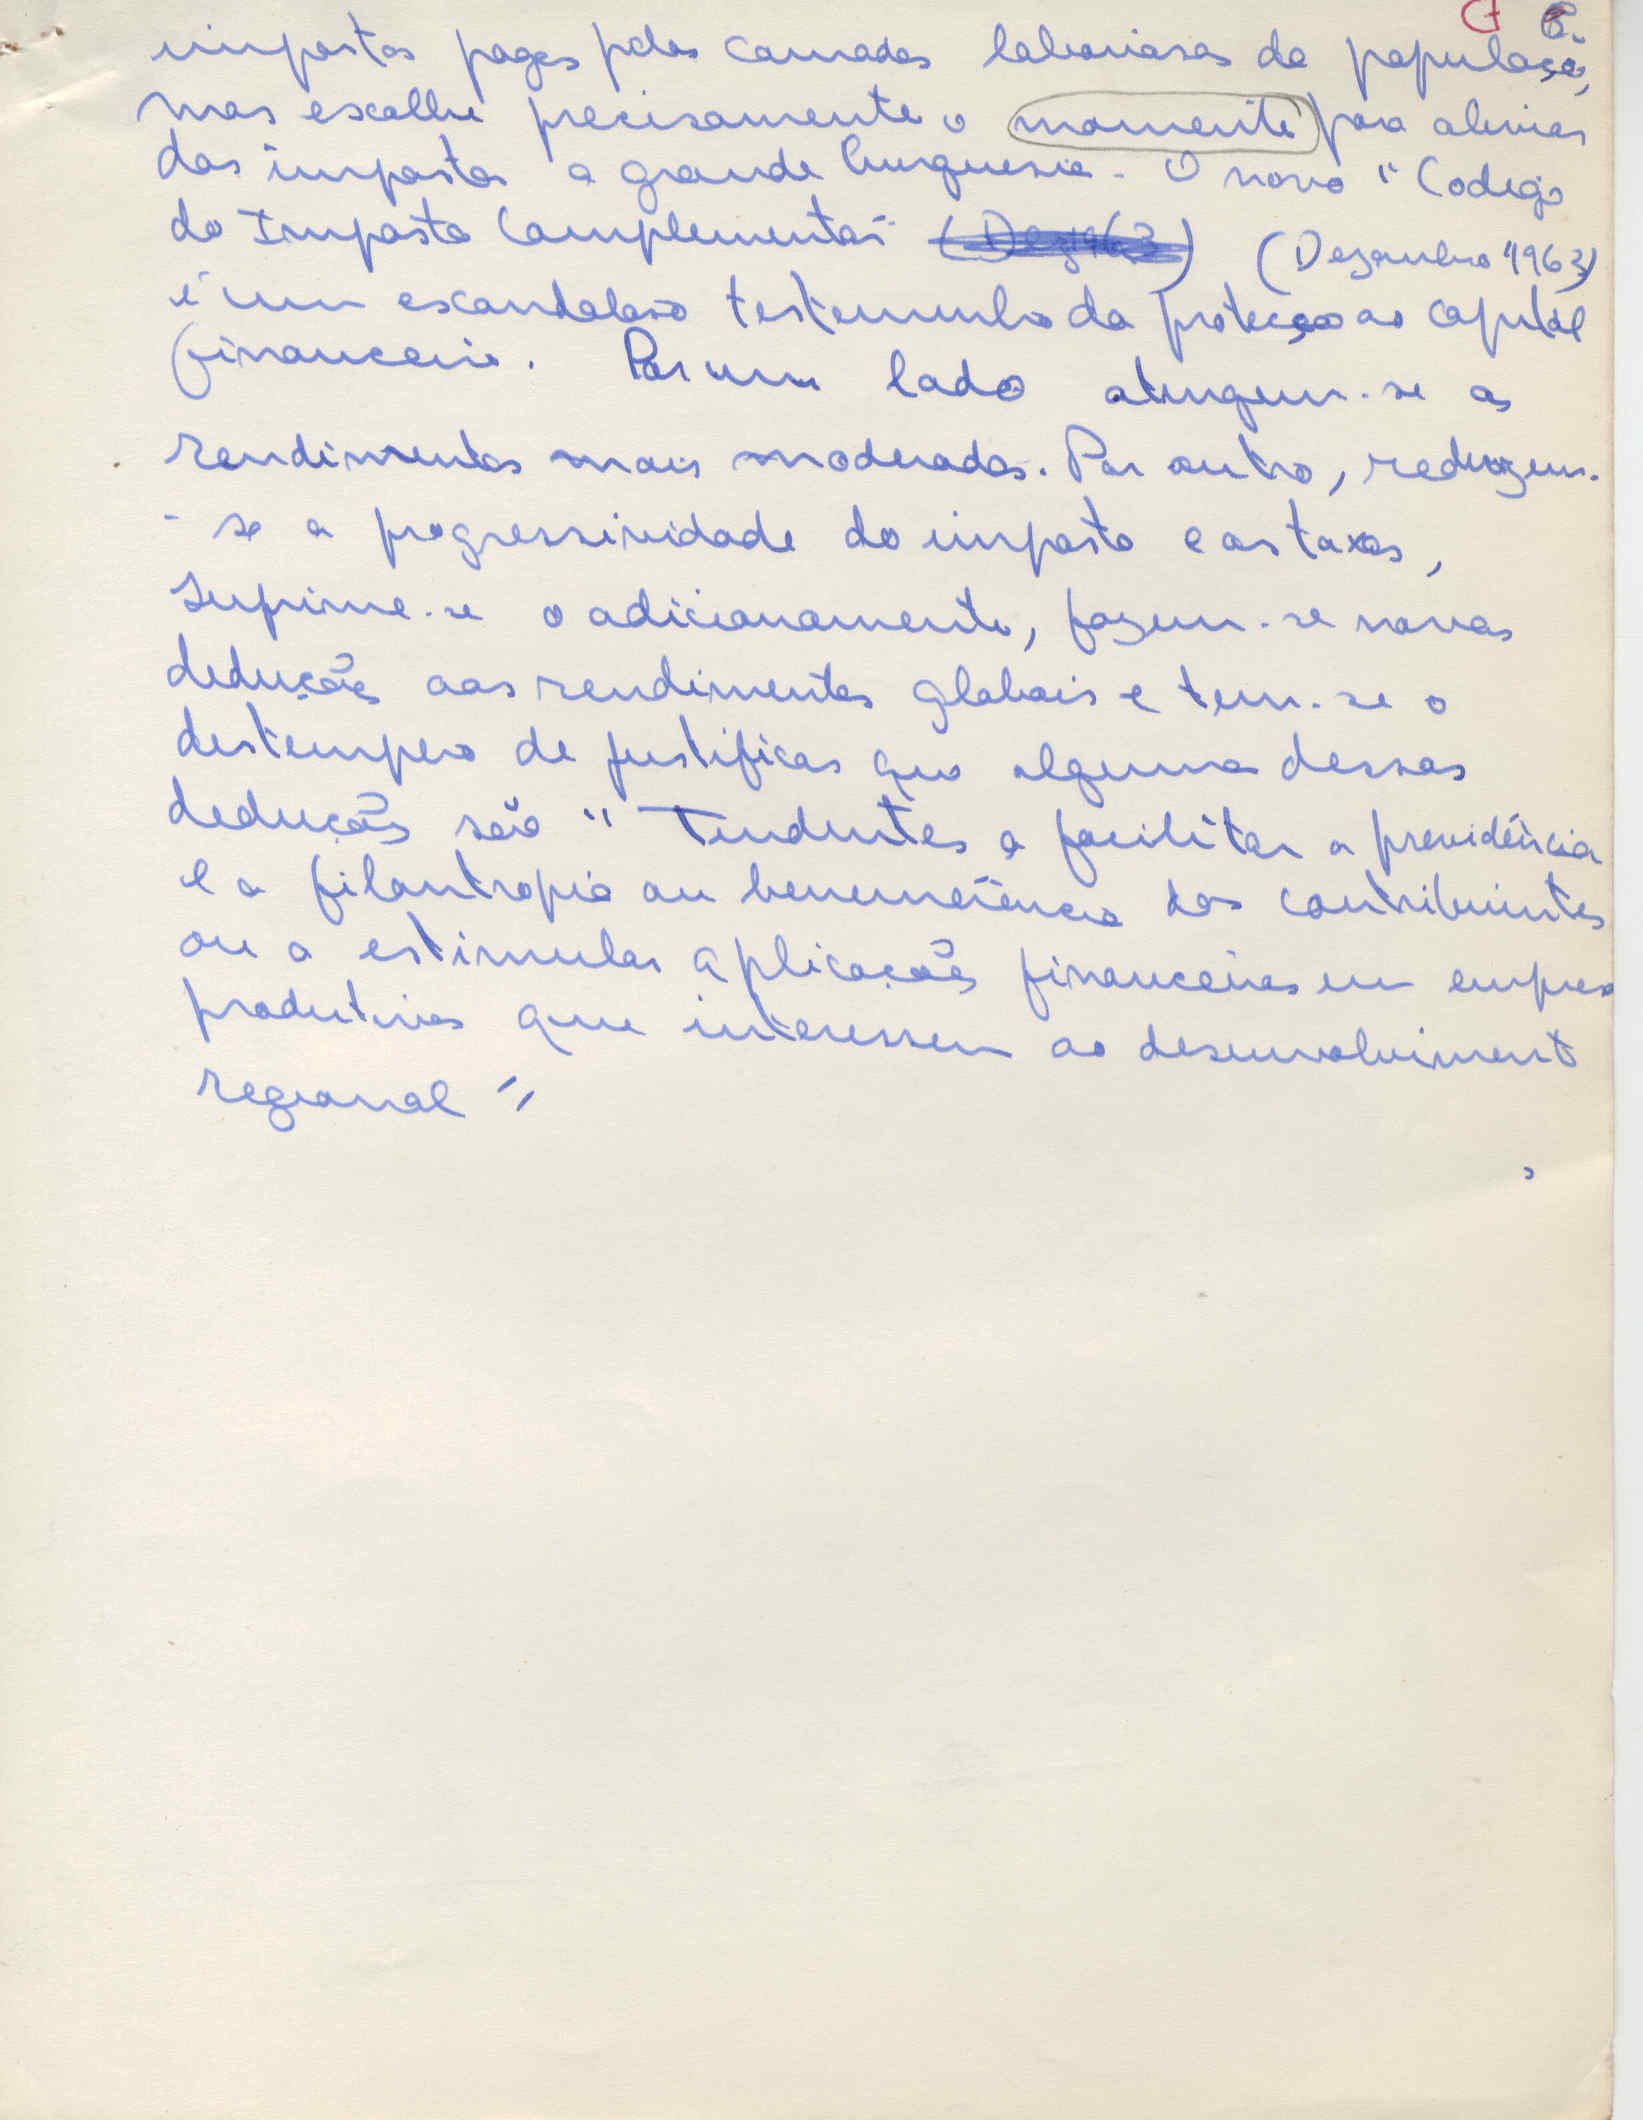 impostos pagos pelas camadas laboriosas da população,
mas escolhe precisamente o momento para aliviar
dos impostos a grande burguesia. O novo "Codigo
do Imposto Complementar (Dez 1963) (Dezembro 1963)
é um escandaloso testemunho da protecção ao capital
financeiro. Por um lado atingem-se os
rendimentos mais moderados. Por outro, reduzem-
-se a progressividade do imposto e as taxas,
suprime-se o adicionamento, fazem-se novas
deduções aos rendimentos globais e tem-se o
destempero de justificar que alguma dessas
deduções são "Tendentes a facilitar a previdência
e a filantropia ou benemerência dos contribuintes
ou a estimular aplicações financeiras em empresa
produtivas que interessem ao desenvolviment
regional"